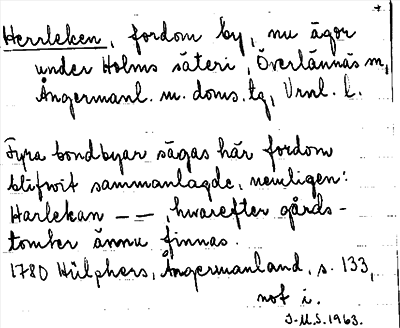 Herrleken, fordom by, nu ägor
under Holms säteri, Överlännäs sn,
Ångermanl. m. doms. tg, Vrnl. l.
Fyra bondbyar sägas här fordom
blifwit sammanlagde, nemligen:
Harlekan — —, hwarefter gårds-
tomter ännu finnas.
1780 Hülphers, Ångermanland, s. 133,
not i.
J-U.S. 1963.